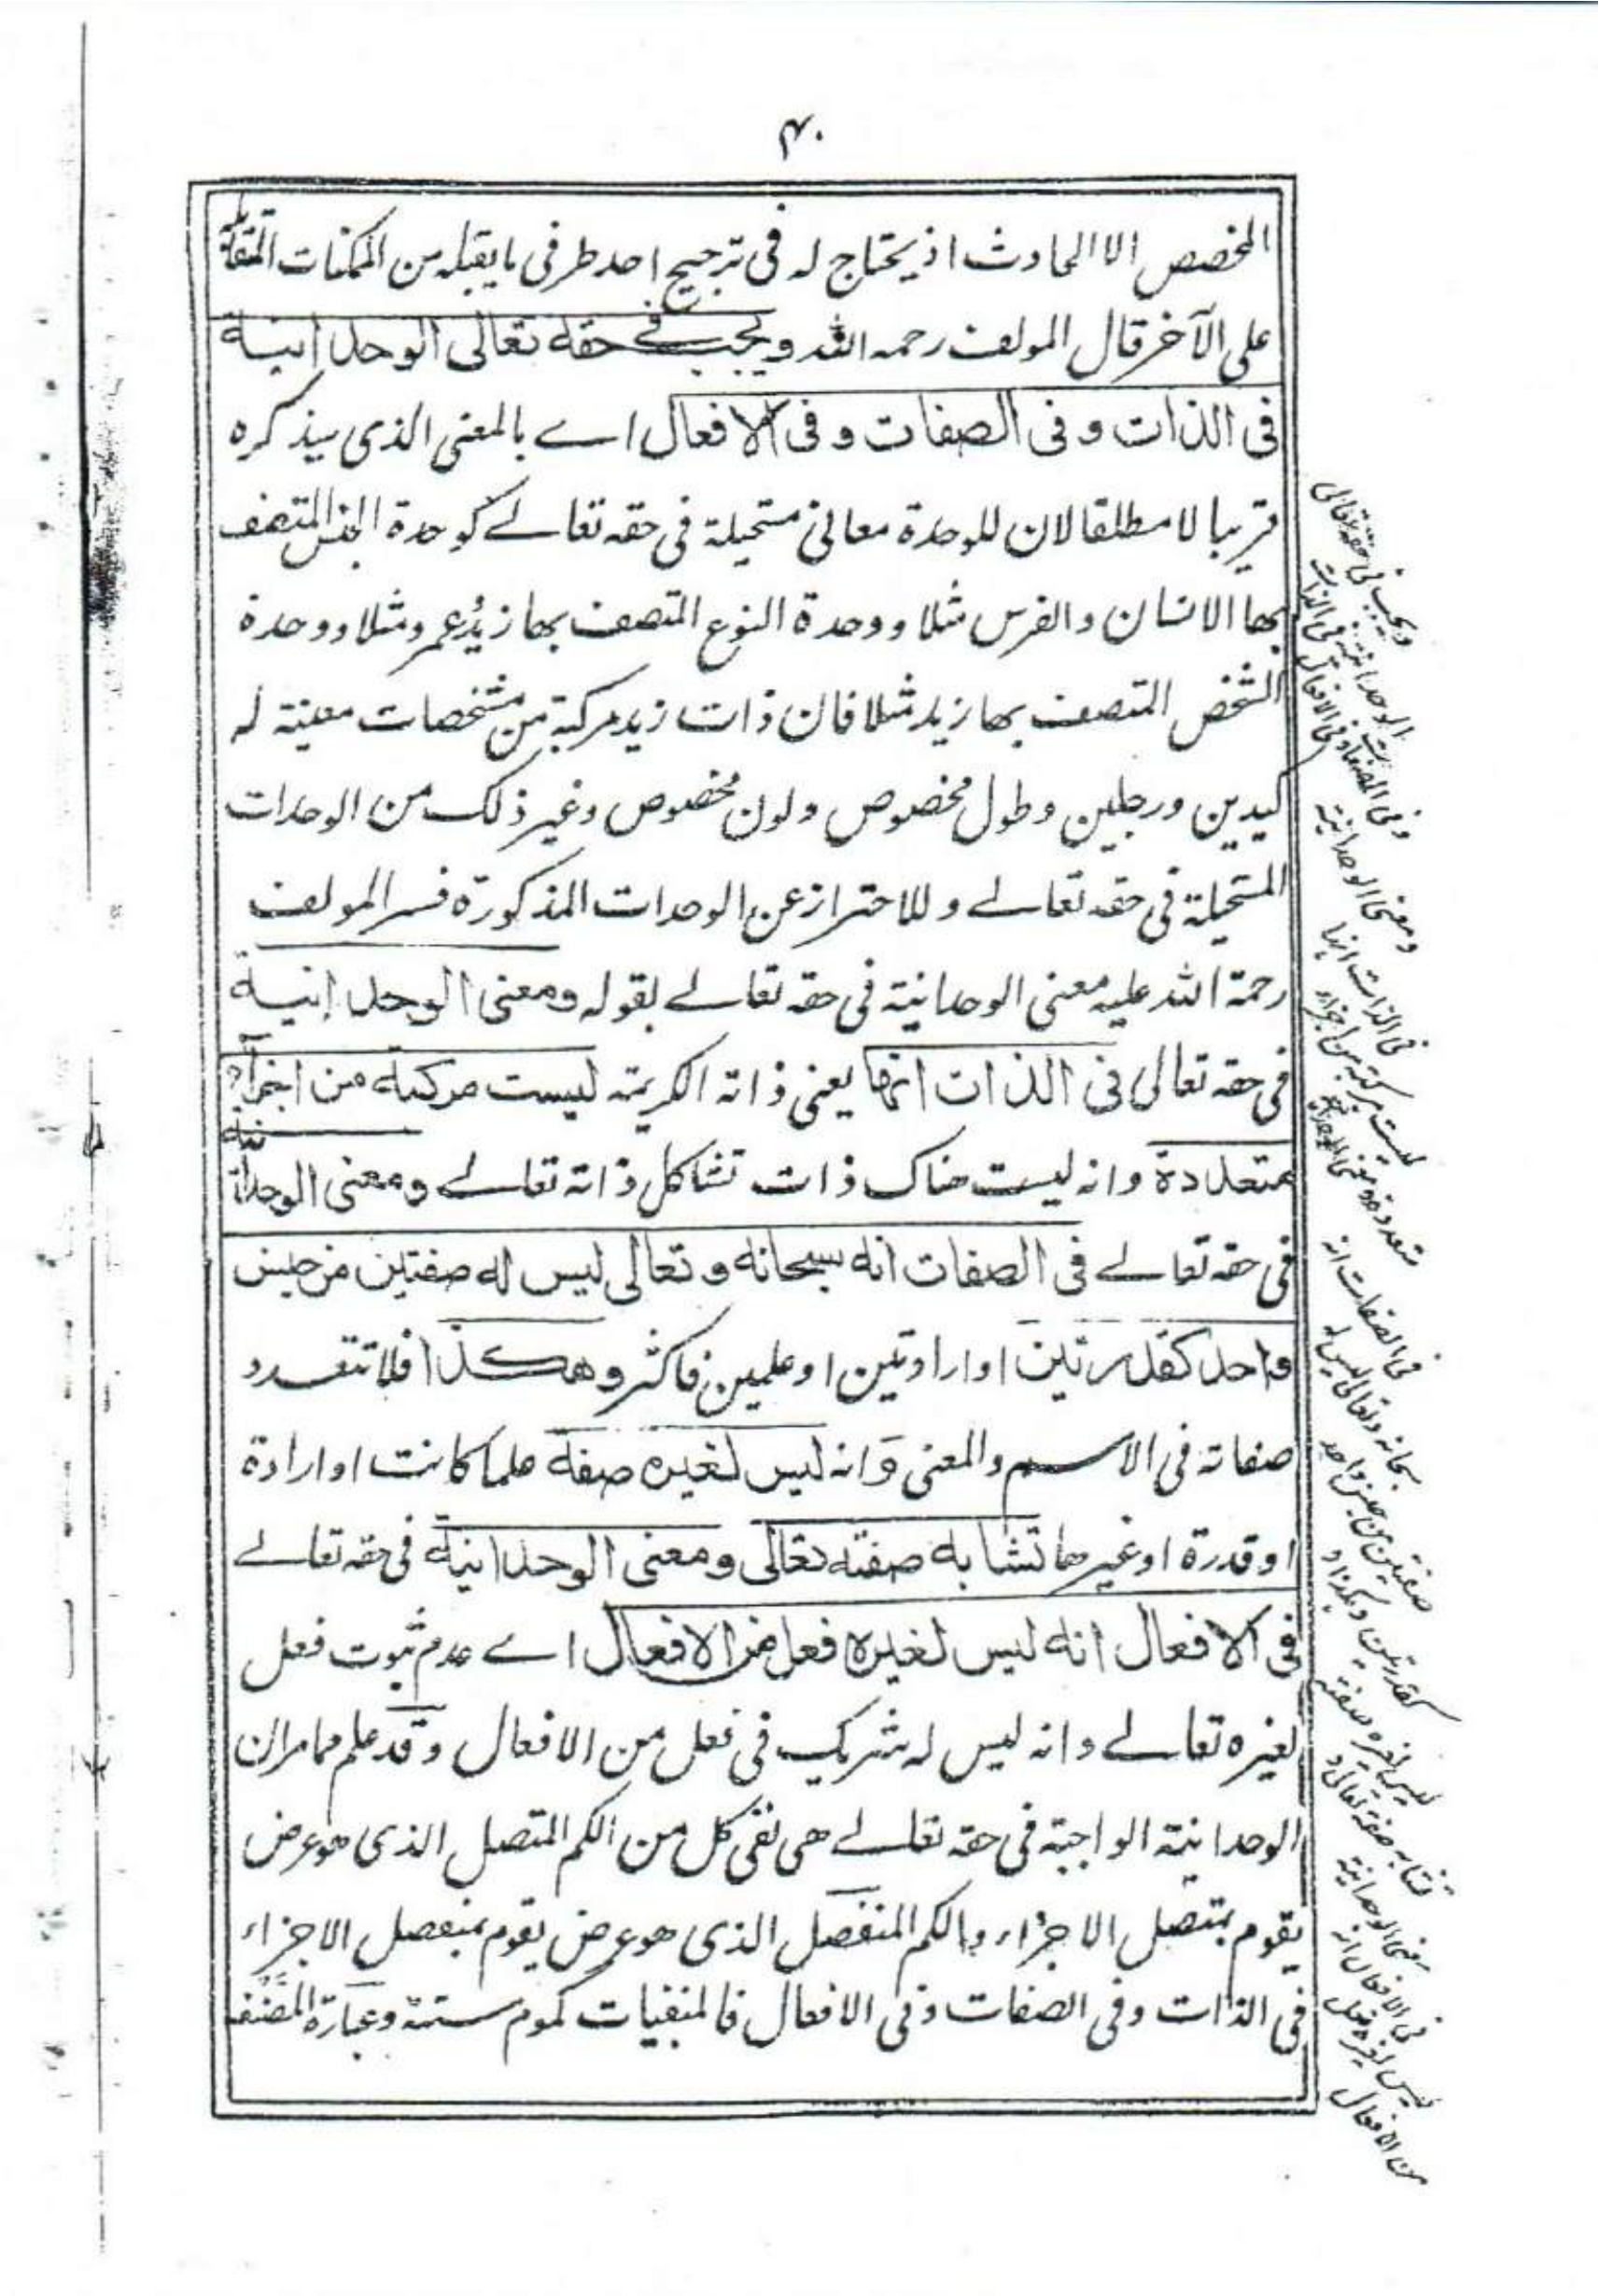 ۴۰
المخصص الا الحادث اذ يحتاج له فى ترجيح احد طرفى ما يقبله من الممكنات المتقابلة
على الآخر قال المولف رحمه الله ويجب فى حقه تعالى الوحدانية
فى الذات وفى الصفات وفى الافعال اے بالمعنى الذى سيذكره
قريبا لا مطلقا لان للوحدة معانى مستحيلة فى حقه تعالے كوحدة الجنس المتصف
بها الانسان والفرس مثلا ووحدة النوع المتصف بها زيدُ عمرو مثلا ووحدة
الشخص المتصف بها زيد مثلا فان ذات زيد مركبة من مشخصات معينة له
كيدين ورجلين وطول مخصوص ولون مخصوص وغير ذلك من الوحدات
المستحيلة فى حقه تعالے وللاحتراز عن الوحدات المذكورة فسر المولف
رحمة الله عليه معنى الوحدانية فى حقه تعالے بقوله ومعنى الوحدانية
فى حقه تعالى فى الذات انها يعنى ذاته الكريمة ليست مركبة من اجزآء
متعددة وانه ليست هناك ذات تشاكل ذاته تعالے ومعنى الوحدانية
فى حقه تعالے فى الصفات انه سبحانه وتعالى ليس له صفتين من جنس
واحد كقدرتين او ارادتين او علمين فاكثر وهكذا فلا تتعدد
صفاته فى الاسم والمعنى وَانه ليس لغيره صفة علما كانت او ارادة
او قدرة او غيرها تشابه صفته تعالى ومعنى الوحدانية فى حقه تعالے
فى الافعال انه ليس لغيره فعل من الافعال اے عدم ثبوت فعل
لغيره تعالے وانه ليس له شريك فى فعل من الافعال وقد علم مما مر ان
الوحدانية الواجبة فى حقه تعالے هى نفى كل من الكم المتصل الذى هو عرض
يقوم بمتصل الاجزاء والكم المنفصل الذى هو عرض يقوم بمنفصل الاجزاء
فى الذات وفى الصفات وفى الافعال فالمنفيات كموم ستة وعبارة المصنف
ويجب فى حقه تعالى
الوحدانية فى الذات
وفى الصفات وفى الافعال
ومعنى الوحدانية
فى الذات انها
ليست مركبة من اجزاء
متعددة ومعنى الوحدانية
فى الصفات انه
سبحانه وتعالى ليس له
صفتين من جنس واحد
كقدرتين وهكذا و
ليس لغيره صفة
تشابه صفته تعالى و
معنى الوحدانية
فى الافعال انه
ليس لغيره فعل
من الافعال